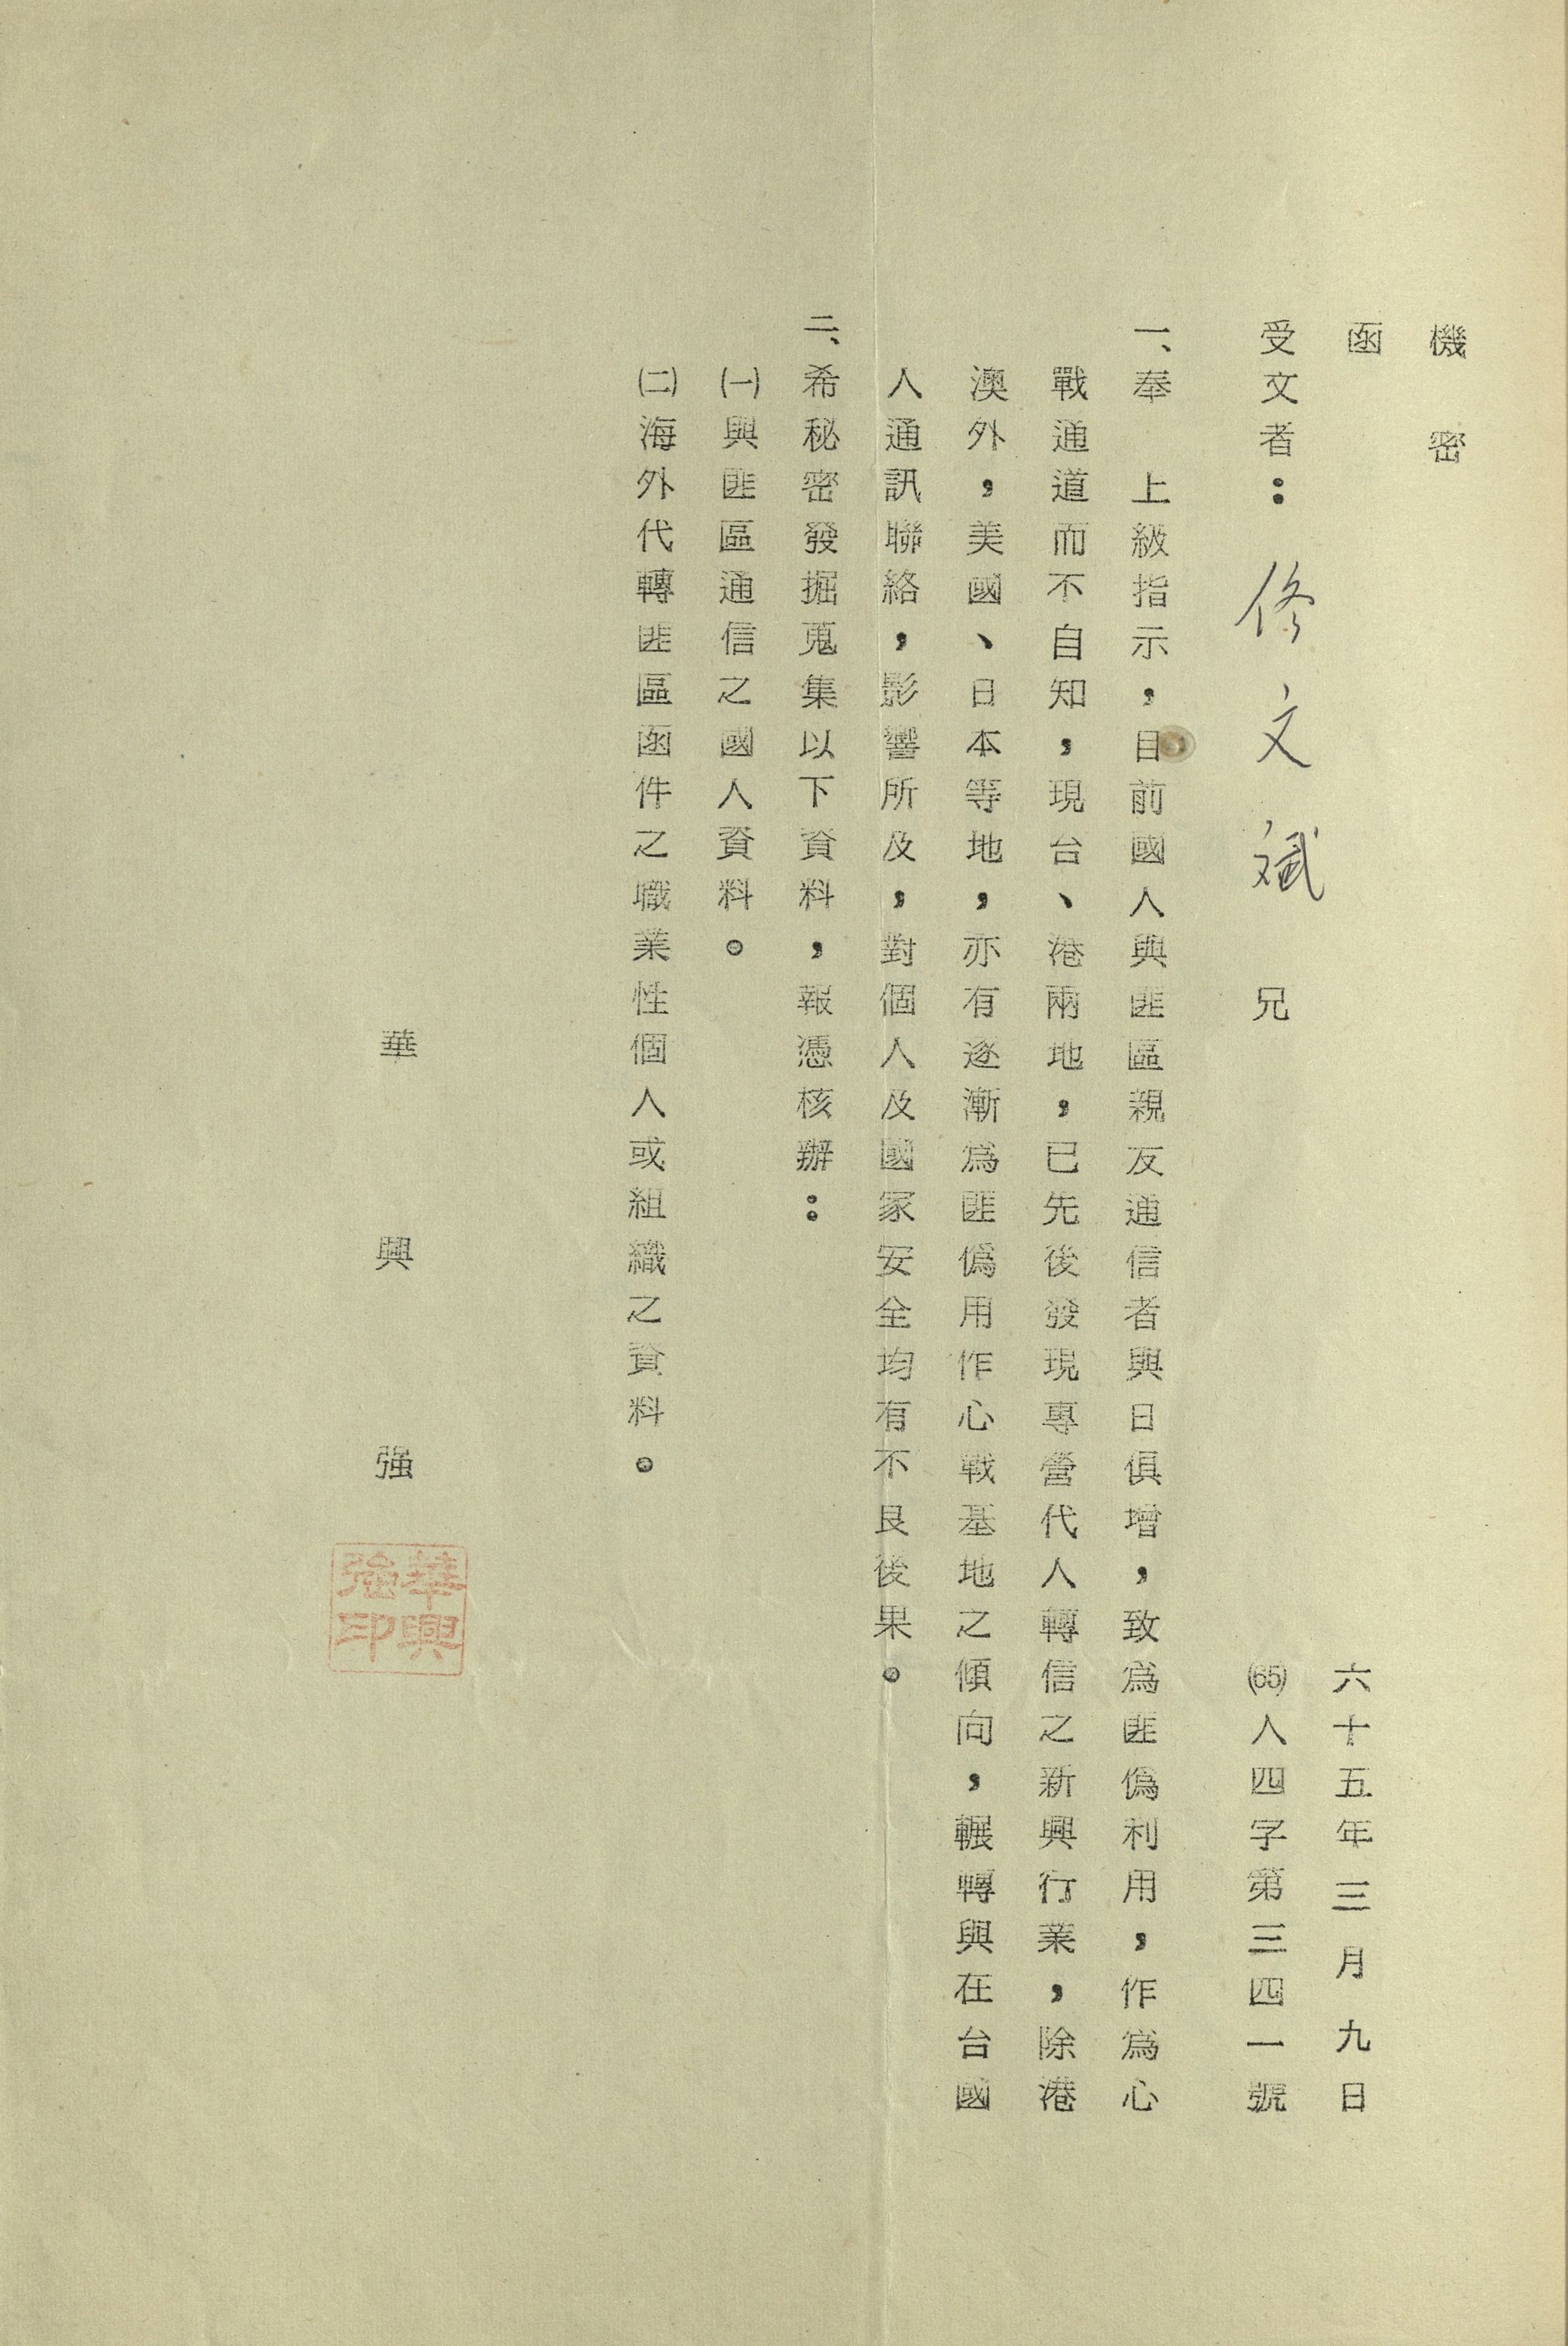 機密
函
六十五年三月九日
受文者：佟文斌 兄
(65)人四字第三四一號
一、奉　上級指示，目前國人與匪區親友通信者與日俱增，致為匪偽利用，作為心
戰通道而不自知，現台、港兩地，已先後發現專營代人轉信之新興行業，除港
澳外，美國、日本等地，亦有逐漸為匪偽用作心戰基地之傾向，輾轉與在台國
人通訊聯絡，影響所及，對個人及國家安全均有不良後果。
二、希秘密發掘蒐集以下資料，報憑核辦：
(一)與匪區通信之國人資料。
(二)海外代轉匪區函件之職業性個人或組織之資料。
華興强
華興
強印